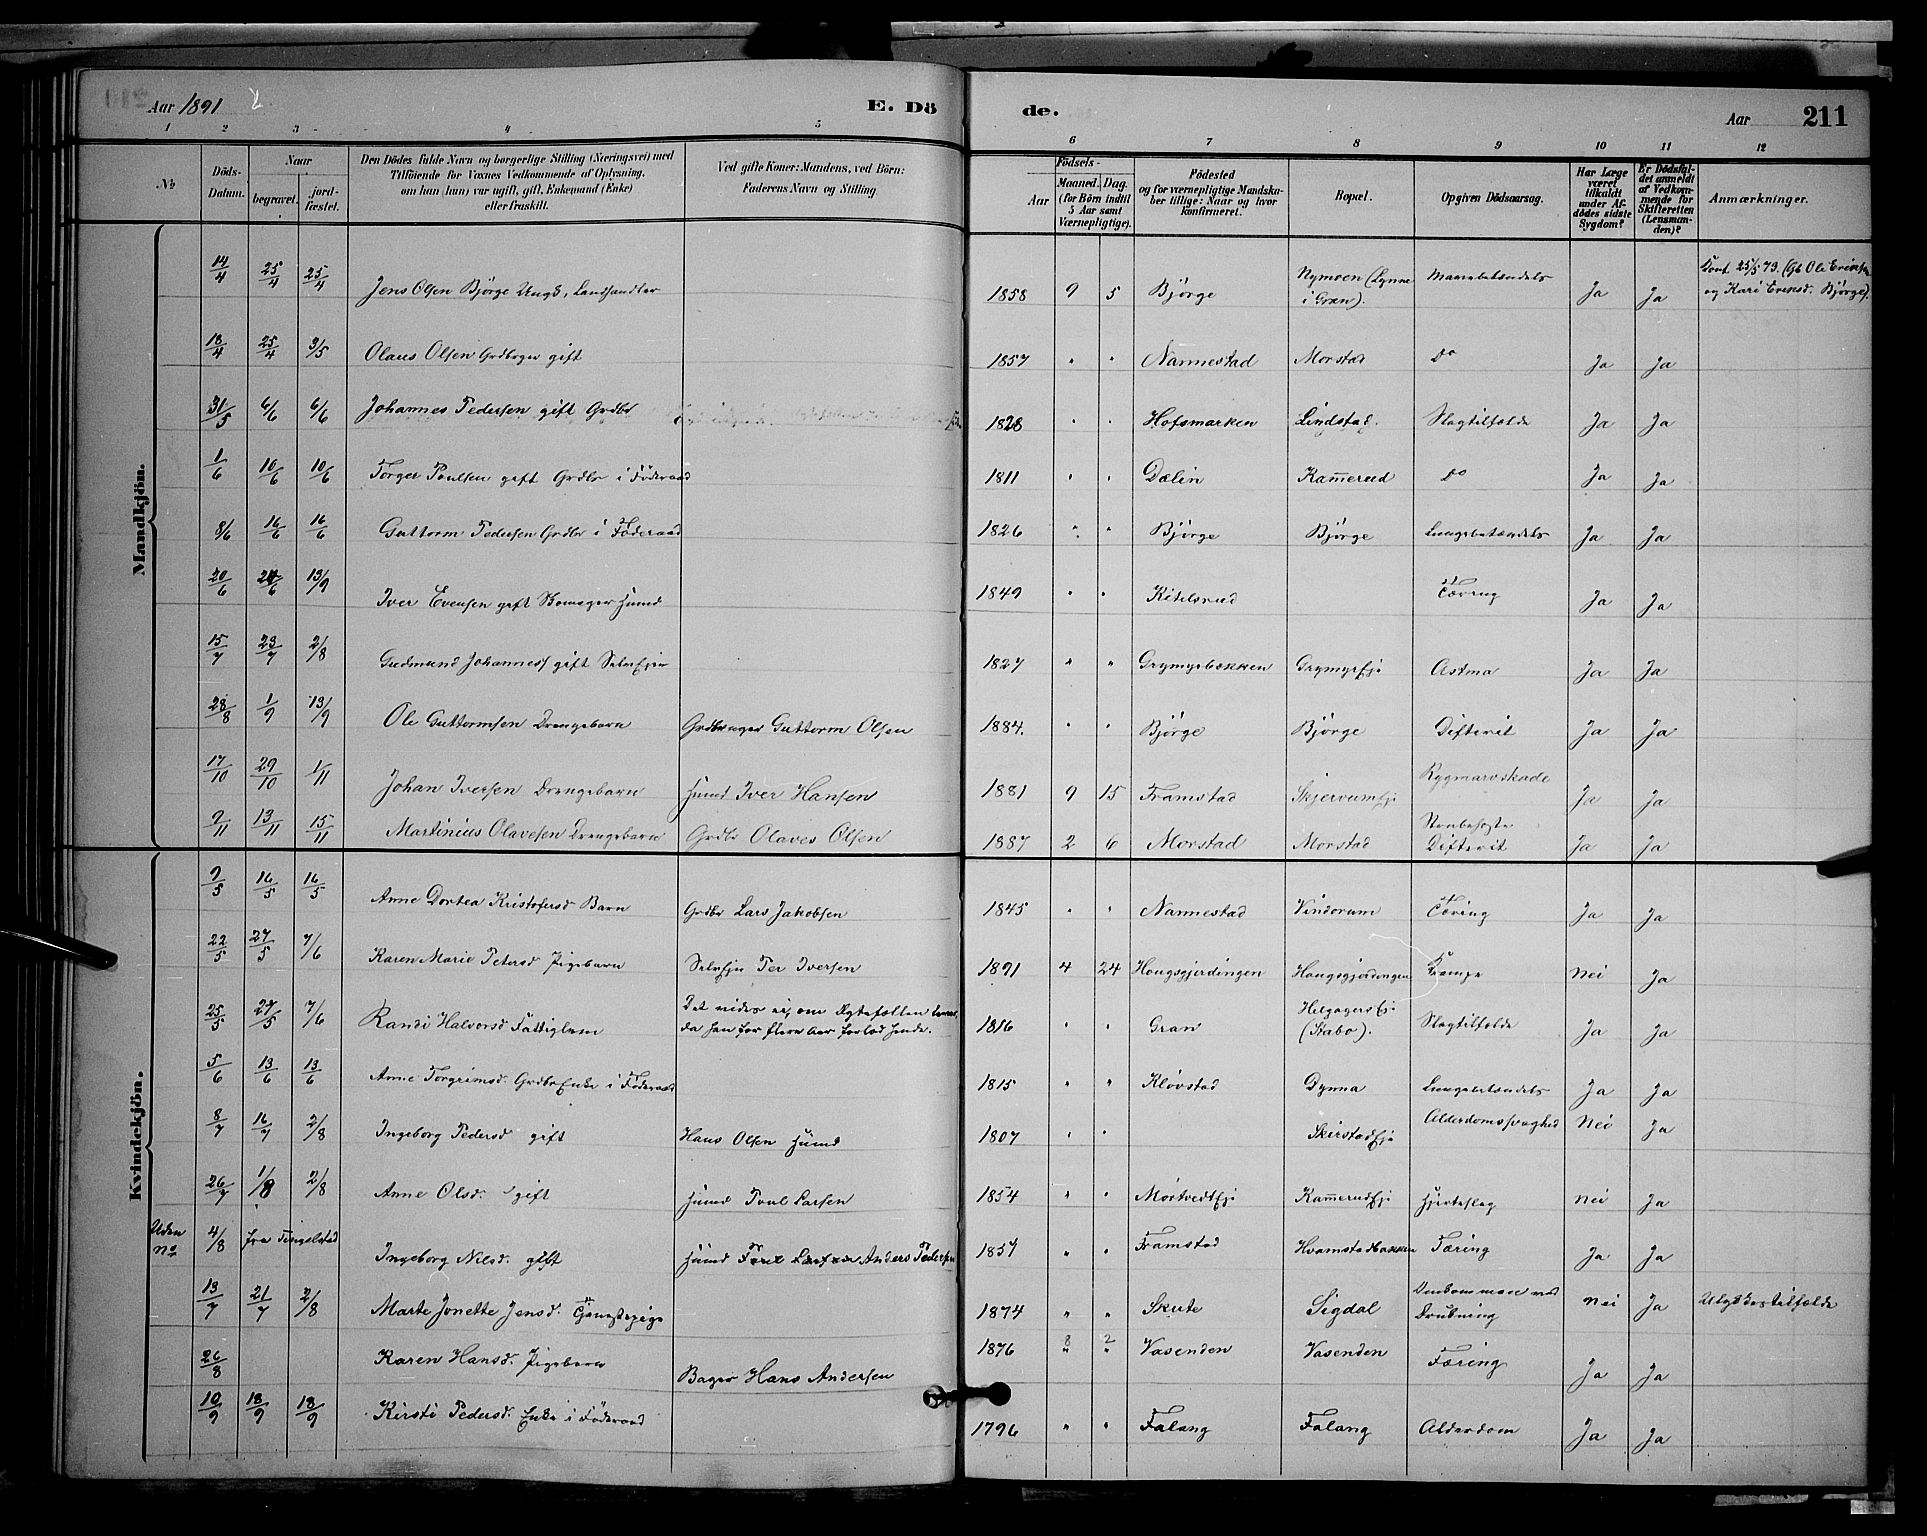 Aar 1891 E. Dö de. Aar 211
1 2 3 4 5 6 7 8 9 10 11 12
No
Döds-Datum.
Naar begravet. jord-fæstet.
Den Dödes fulde Navn og borgerlige Stilling (Næringsvei) med Tilföiende for Voxnes Vedkommende af Oplysning, om han (hun) var ugift, gift, Enkemand (Enke) eller fraskilt.
Ved gifte Koner: Mandens, ved Börn: Faderens Navn og Stilling.
Födsels-
Aar Maaned. Dag.
(for Börn indtil 5 Aar samt Værnepligtige).
Födested og for værnepligtige Mandskaber tillige: Naar og hvor konfirmeret.
Bopæl.
Opgiven Dödsaarsag.
Har Læge været tilkaldt under Afdödes sidste Sygdom?
Er Dödsfaldet anmeldt af Vedkommende for Skifteretten (Lensmanden)?
Anmærkninger.
Mandkjön.
14/4 25/4 25/4 Jens Olsen Bjørge Ungk., Landhandler 1858 9 5 Bjørge Nymoen (Lynne i Gran). Mavebetændels Ja Ja Konf. 25/5 73. (Gb Ole Eriksen og Kari Eriksd. Bjørge).
18/4 25/4 3/5 Olaus Olsen Grdbrger gift 1857 " " Nannestad Morstad Do Ja Ja
31/5 6/6 6/6 Johannes Pedersen gift Grdbr 1828 " " Hofsmarken Lindstad. Slagtilfælde Ja Ja
1/6 10/6 10/6 Torger Poulsen gift Grdbr i Föderaad 1811 " " Dælin Kamerud Do Ja Ja
8/6 16/6 16/6 Guttorm Pedersen Grdbr i Föderaad 1826 " " Bjørge Bjørge Lungebetændels Ja Ja
20/6 24/6 13/9 Iver Evensen gift Skomager Husmd 1849 " " Kitelsrud Tæring Ja Ja
15/7 23/7 2/8 Gudmund Johanness gift Selvejer 1827 " " Grymyrbakken GrymyrEje Astma Ja Ja
28/8 1/9 13/9 Ole Guttormsen Drengebarn Grdbruger Guttorm Olsen 1884. " " Bjørge Bjørge Difterit Ja Ja
17/10 29/10 1/11 Johan Iversen Drengebarn Husmd Iver Hansen 1881 9 15 Framstad SkjervumEje Rygmarvskade Ja Ja
9/11 13/11 15/11 Martinius Olavesen Drengebarn Grdbr Olaves Olsen 1887 2 6 Morstad Morstad Strubehoste Difterit Ja Ja
Kvindekjön.
9/5 16/5 16/5 Anne Dortea Kristofersd Barn Grdbr Lars Jakobsen 1845 " " Nannestad Vindorum Tæring Ja Ja
22/5 27/5 7/6 Karen Marie Petersd Pigebarn Selvejer Per Iversen 1891 4 24 Haugsgjerdingen Haugsgjerdingen Krampe Nei Ja
25/5 27/5 7/6 Randi Halvorsd Fattiglem Det vides ei, om Ægtefællen lever, da han for flere Aar forlod hende. 1816 " " Gran HelgagersEje (Stabo). Slagtilfælde Ja Ja
5/6 13/6 13/6 Anne Torgrimsd. GrdbrEnke i Föderaad 1815 " " Klövstad Dynna Lungebetændels Ja Ja
8/7 16/7 2/8 Ingeborg Pedersd gift Hans Olsen Husmd 1807 " " SkirstadEje Alderdomssvaghed Nei Ja
26/7 1/8 2/8 Anne Olsd. gift Husmd Poul Larsen 1854 " " MörtvedtEje KamerudEje Hjerteslag Nei Ja
Uden No 4/8 fra Tingelstad Ingeborg Nilsd. gift Husmd Anders Pedersen 1857 " " Framstad Hvamstadbakken Tæring Ja Ja
13/7 21/7 2/8 Marte Jonette Jensd. Tjenestepige 1874 " " Skute Sigdal Omkommen ved Drukning Nei Ja Ulykkestilfælde
26/8 Karen Hansd. Pigebarn Bager Hans Andersen 1876 8 2 Vasenden Vasenden Tæring Ja Ja
10/9 18/9 18/9 Kirsti Pedersd. Enke i Föderaad 1796 " " Falang Falang Alderdom Ja Ja